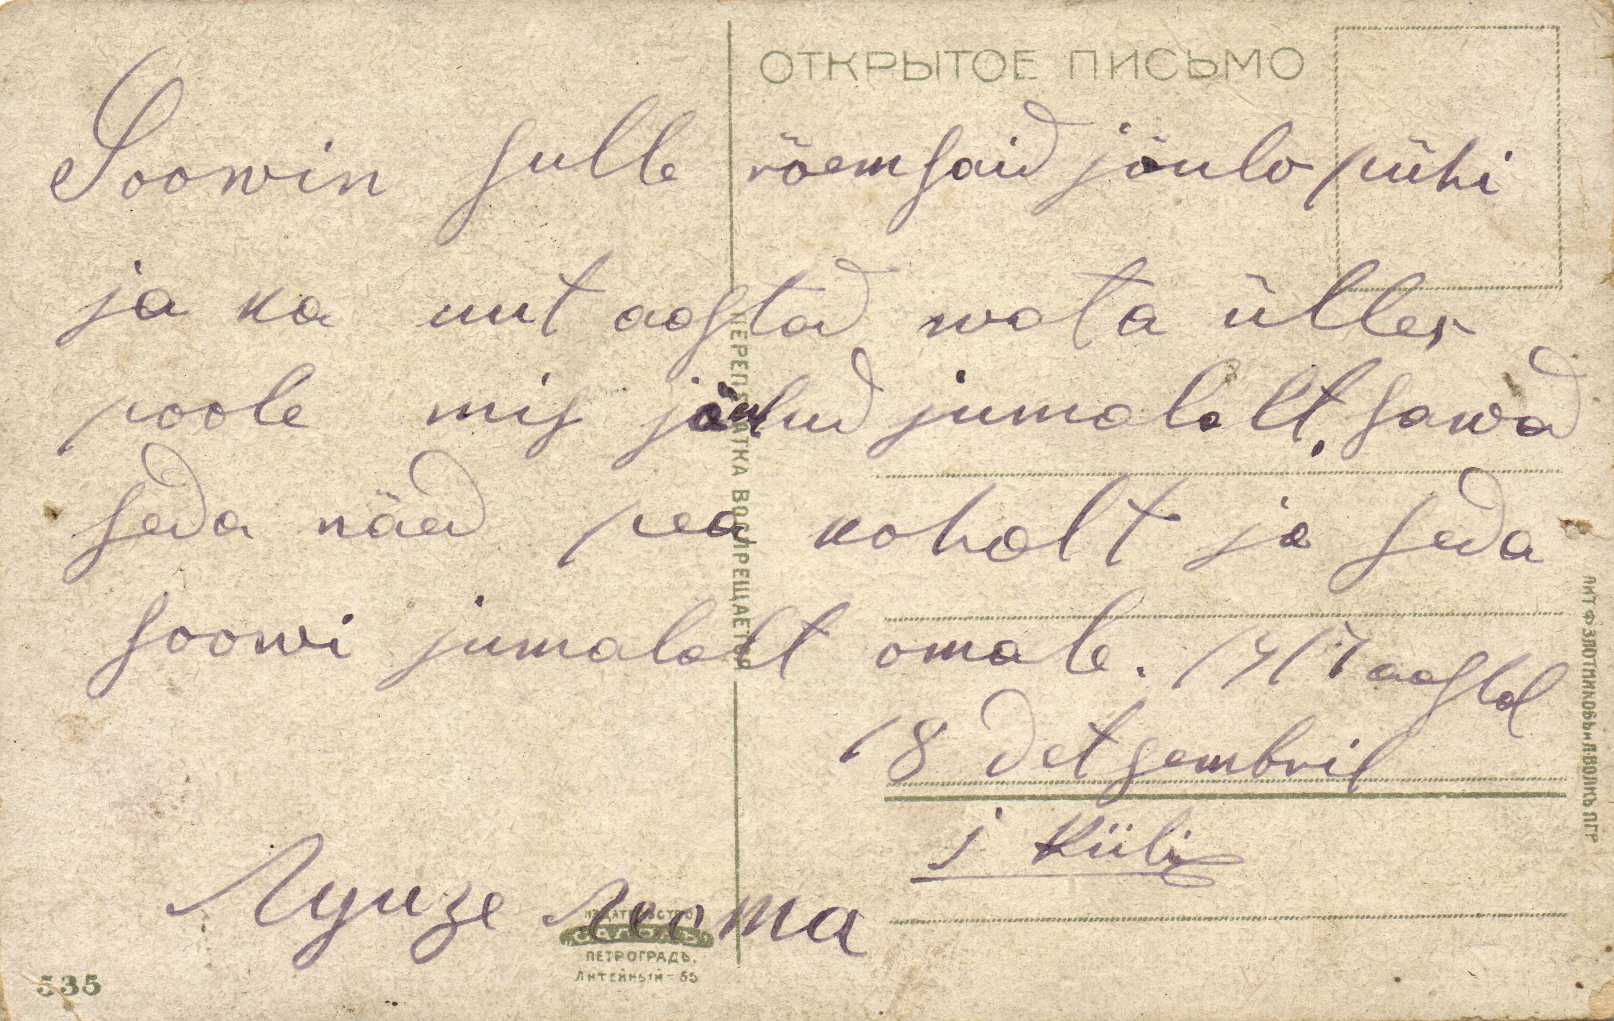 ОТКРЫТОЕ ПИСЬМО
Soowin sulle rõemsaid jõulo pühi
ja ka uut aastad wata üller
poole mis jõulud jumalalt. sawad
seda näed pea kohalt ja seda
soowi jumalalt omale. 1917 aastal
18 detsembril
j Küli
Луизе
ПЕРЕПЕЧАТКА ВОСПРЕЩАЕТСЯ
ЛИТ Ф ЗЛОТНИКОВЪ и Л ВОЛКЪ ПГР
ИЗДАТЕЛЬСТВО
ПЕТРОГРАДЪ.
Литейный-55
535